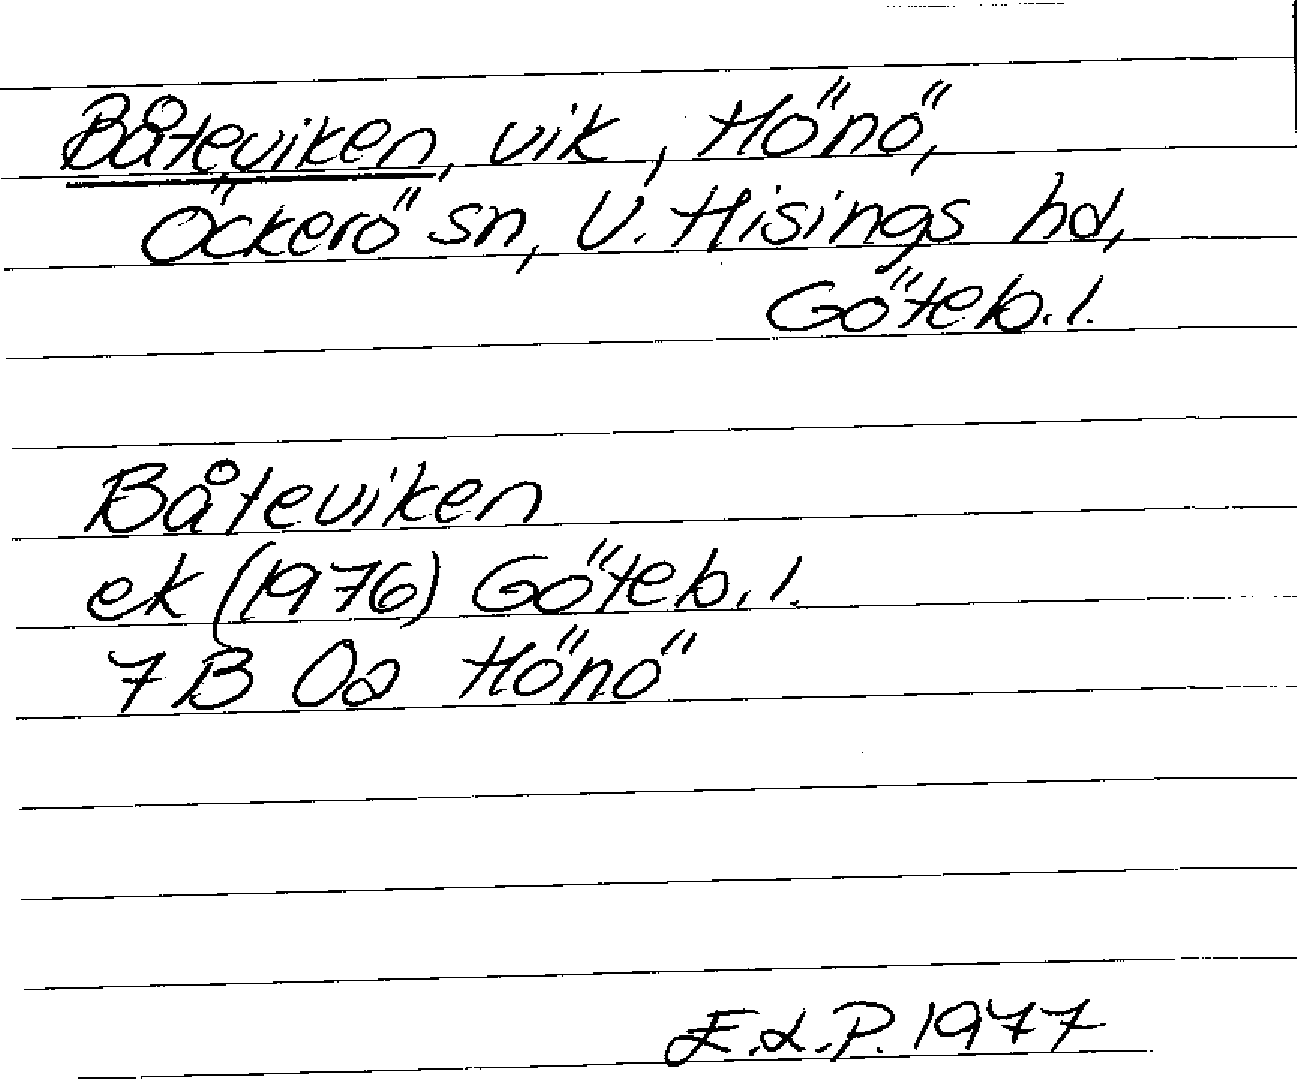 Båteviken, vik, Hönö,
Öckerö sn, V. Hisings hd,
Göteb. l.
Båteviken
ek (1976) Göteb. l.
7 B 0a Hönö
E.L.P. 1977